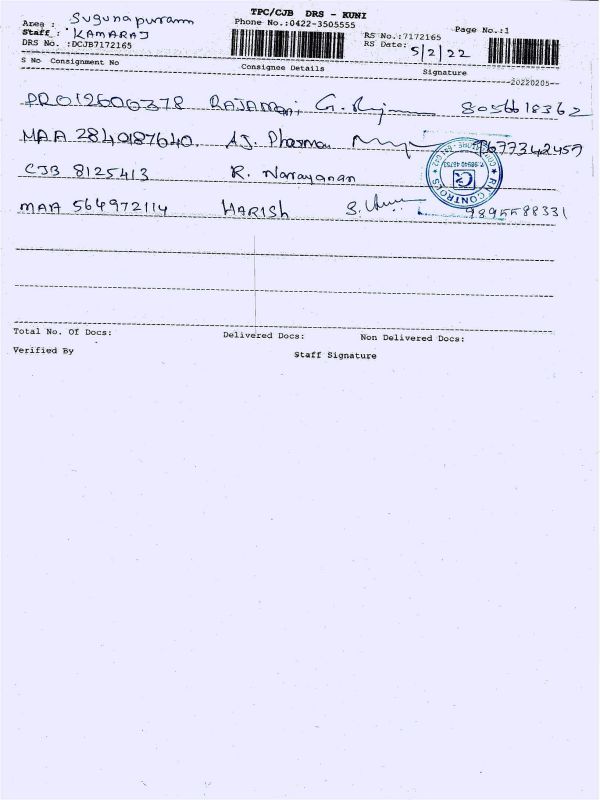 TPC/CJB DRS - KUNI
Area : Sugunapuram
Phone No.:0422-3505555
Page No.:1
Staff : KAMARAJ
RS No.:7172165
DRS No. :DCJB7172165
RS Date: 5/2/22
S No Consignment No Consignee Details Signature
--20220205--
PRO12606378 RAJAMani 8056618362
MAA 2840187640. AJ. Pharma 9677342459
RN CONTROLS
CJB 8125413 R. Narayanan
MAA 564972114 HARISH 9895588331
Total No. Of Docs: Delivered Docs: Non Delivered Docs:
Verified By Staff Signature